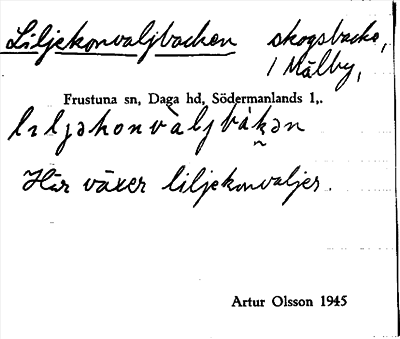 Liljekonvaljbacken skogsbacke,
i Målby,
Frustuna sn, Daga hd, Södermanlands l,.
lıljəkonvàljbàk̰ən
Här växer liljekonvaljer.
Artur Olsson 1945